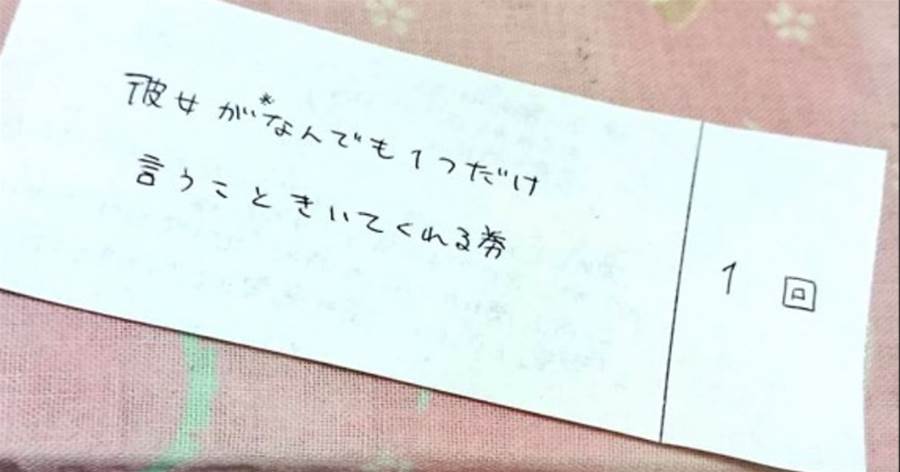 彼女が*なんでも1つだけ
言うこときいてくれる券
1回